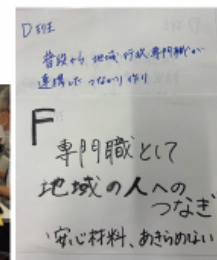 D班
普段から地域、行政、専門職が
連携したつながり作り
F
専門職として
地域の人への
つなぎ
・安心材料、あきらめない